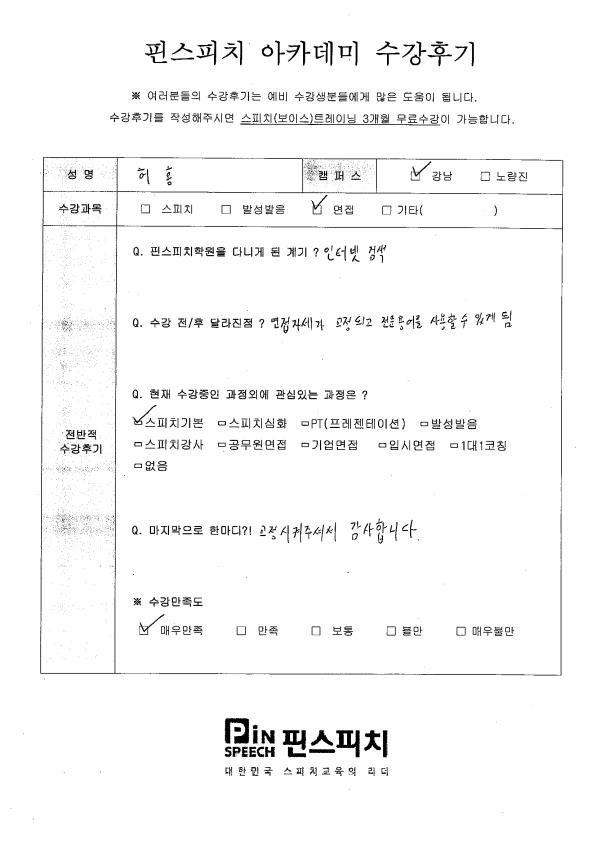 핀스피치 아카데미 수강후기
※ 여러분들의 수강후기는 예비 수강생분들에게 많은 도움이 됩니다.
수강후기를 작성해주시면 스피치(보이스)트레이닝 3개월 무료수강이 가능합니다.
성 명 허 흥 캠 퍼 스 ☑ 강남 □ 노량진
수강과목 □ 스피치 □ 발성발음 ☑ 면접 □ 기타( )
전반적
수강후기
Q. 핀스피치학원을 다니게 된 계기 ? 인터넷 검색
Q. 수강 전/후 달라진점 ? 면접자세가 교정되고 전문용어를 사용할 수 있게 됨
Q. 현재 수강중인 과정외에 관심있는 과정은 ?
☑스피치기본 □스피치심화 □PT(프레젠테이션) □발성발음
□스피치강사 □공무원면접 □기업면접 □입시면접 □1대1코칭
□없음
Q. 마지막으로 한마디?! 교정시켜주셔서 감사합니다.
※ 수강만족도
☑ 매우만족 □ 만족 □ 보통 □ 불만 □ 매우불만
PiN
SPEECH 핀스피치
대한민국 스피치교육의 리더